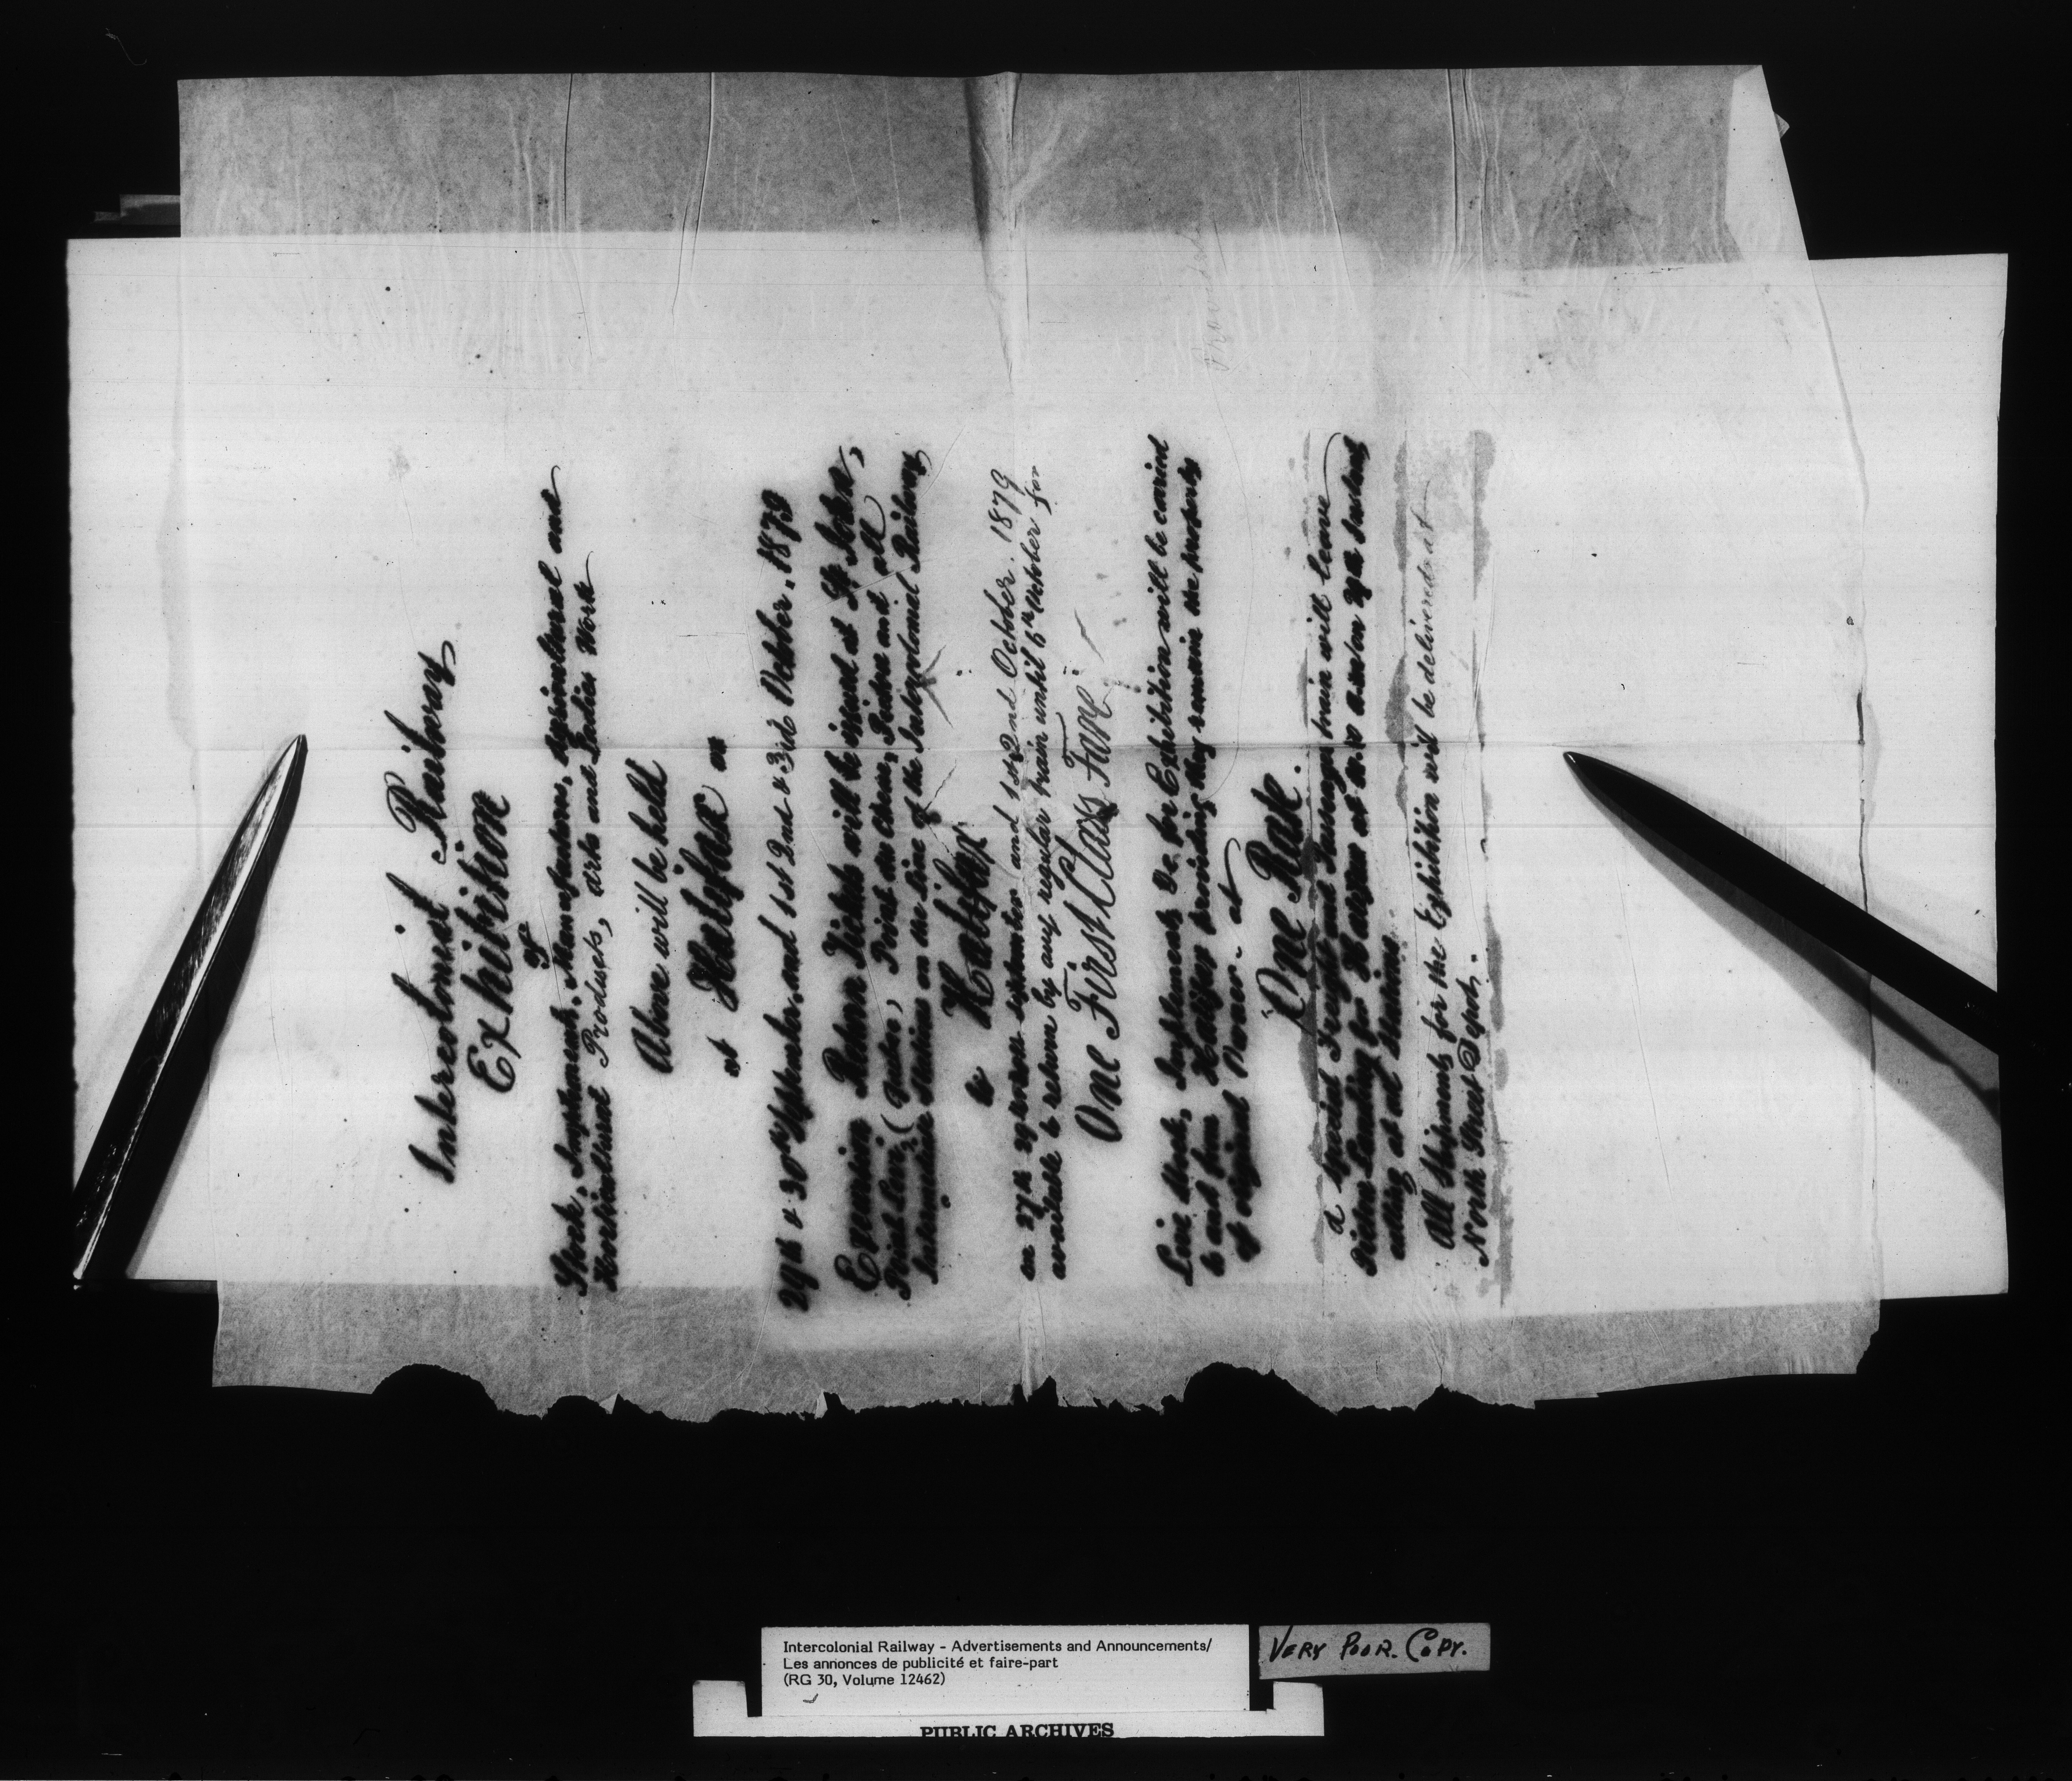 Intercolonial Railway
Exhibition
of
Stock, Implements, Manufactures, Agricultural and
Horticultural Products, Arts and Ladies Work
Above will be held
at Halifax on
29th & 30th September, and 1st 2nd & 3rd October, 1879
Excursion Return Tickets will be issued at St. John,
Point Levi, (Quebec, Point du Chene, Pictou and all
Intermediate Stations on the line of the Intercolonial Railway
to Halifax
on 27th 29th September and 1st 2nd October. 1879
available to return by any regular train until 6th October for
One First Class Fare
Live Stock, Implements &c. for Exhibition will be carried
to and from Halifax providing they remain the property
of original Owner - at
One Rate.
A Special Freight and Passenger train will leave
Pictou Landing for Halifax at on 27th Instant
calling at all Stations
All Shipments for the Exhibition will be delivered at
North Street Depot.
Intercolonial Railway - Advertisements and Announcements/
Les annonces de publicité et faire-part
(RG 30, Volume 12462)
VERY POOR. COPY.
PUBLIC ARCHIVES